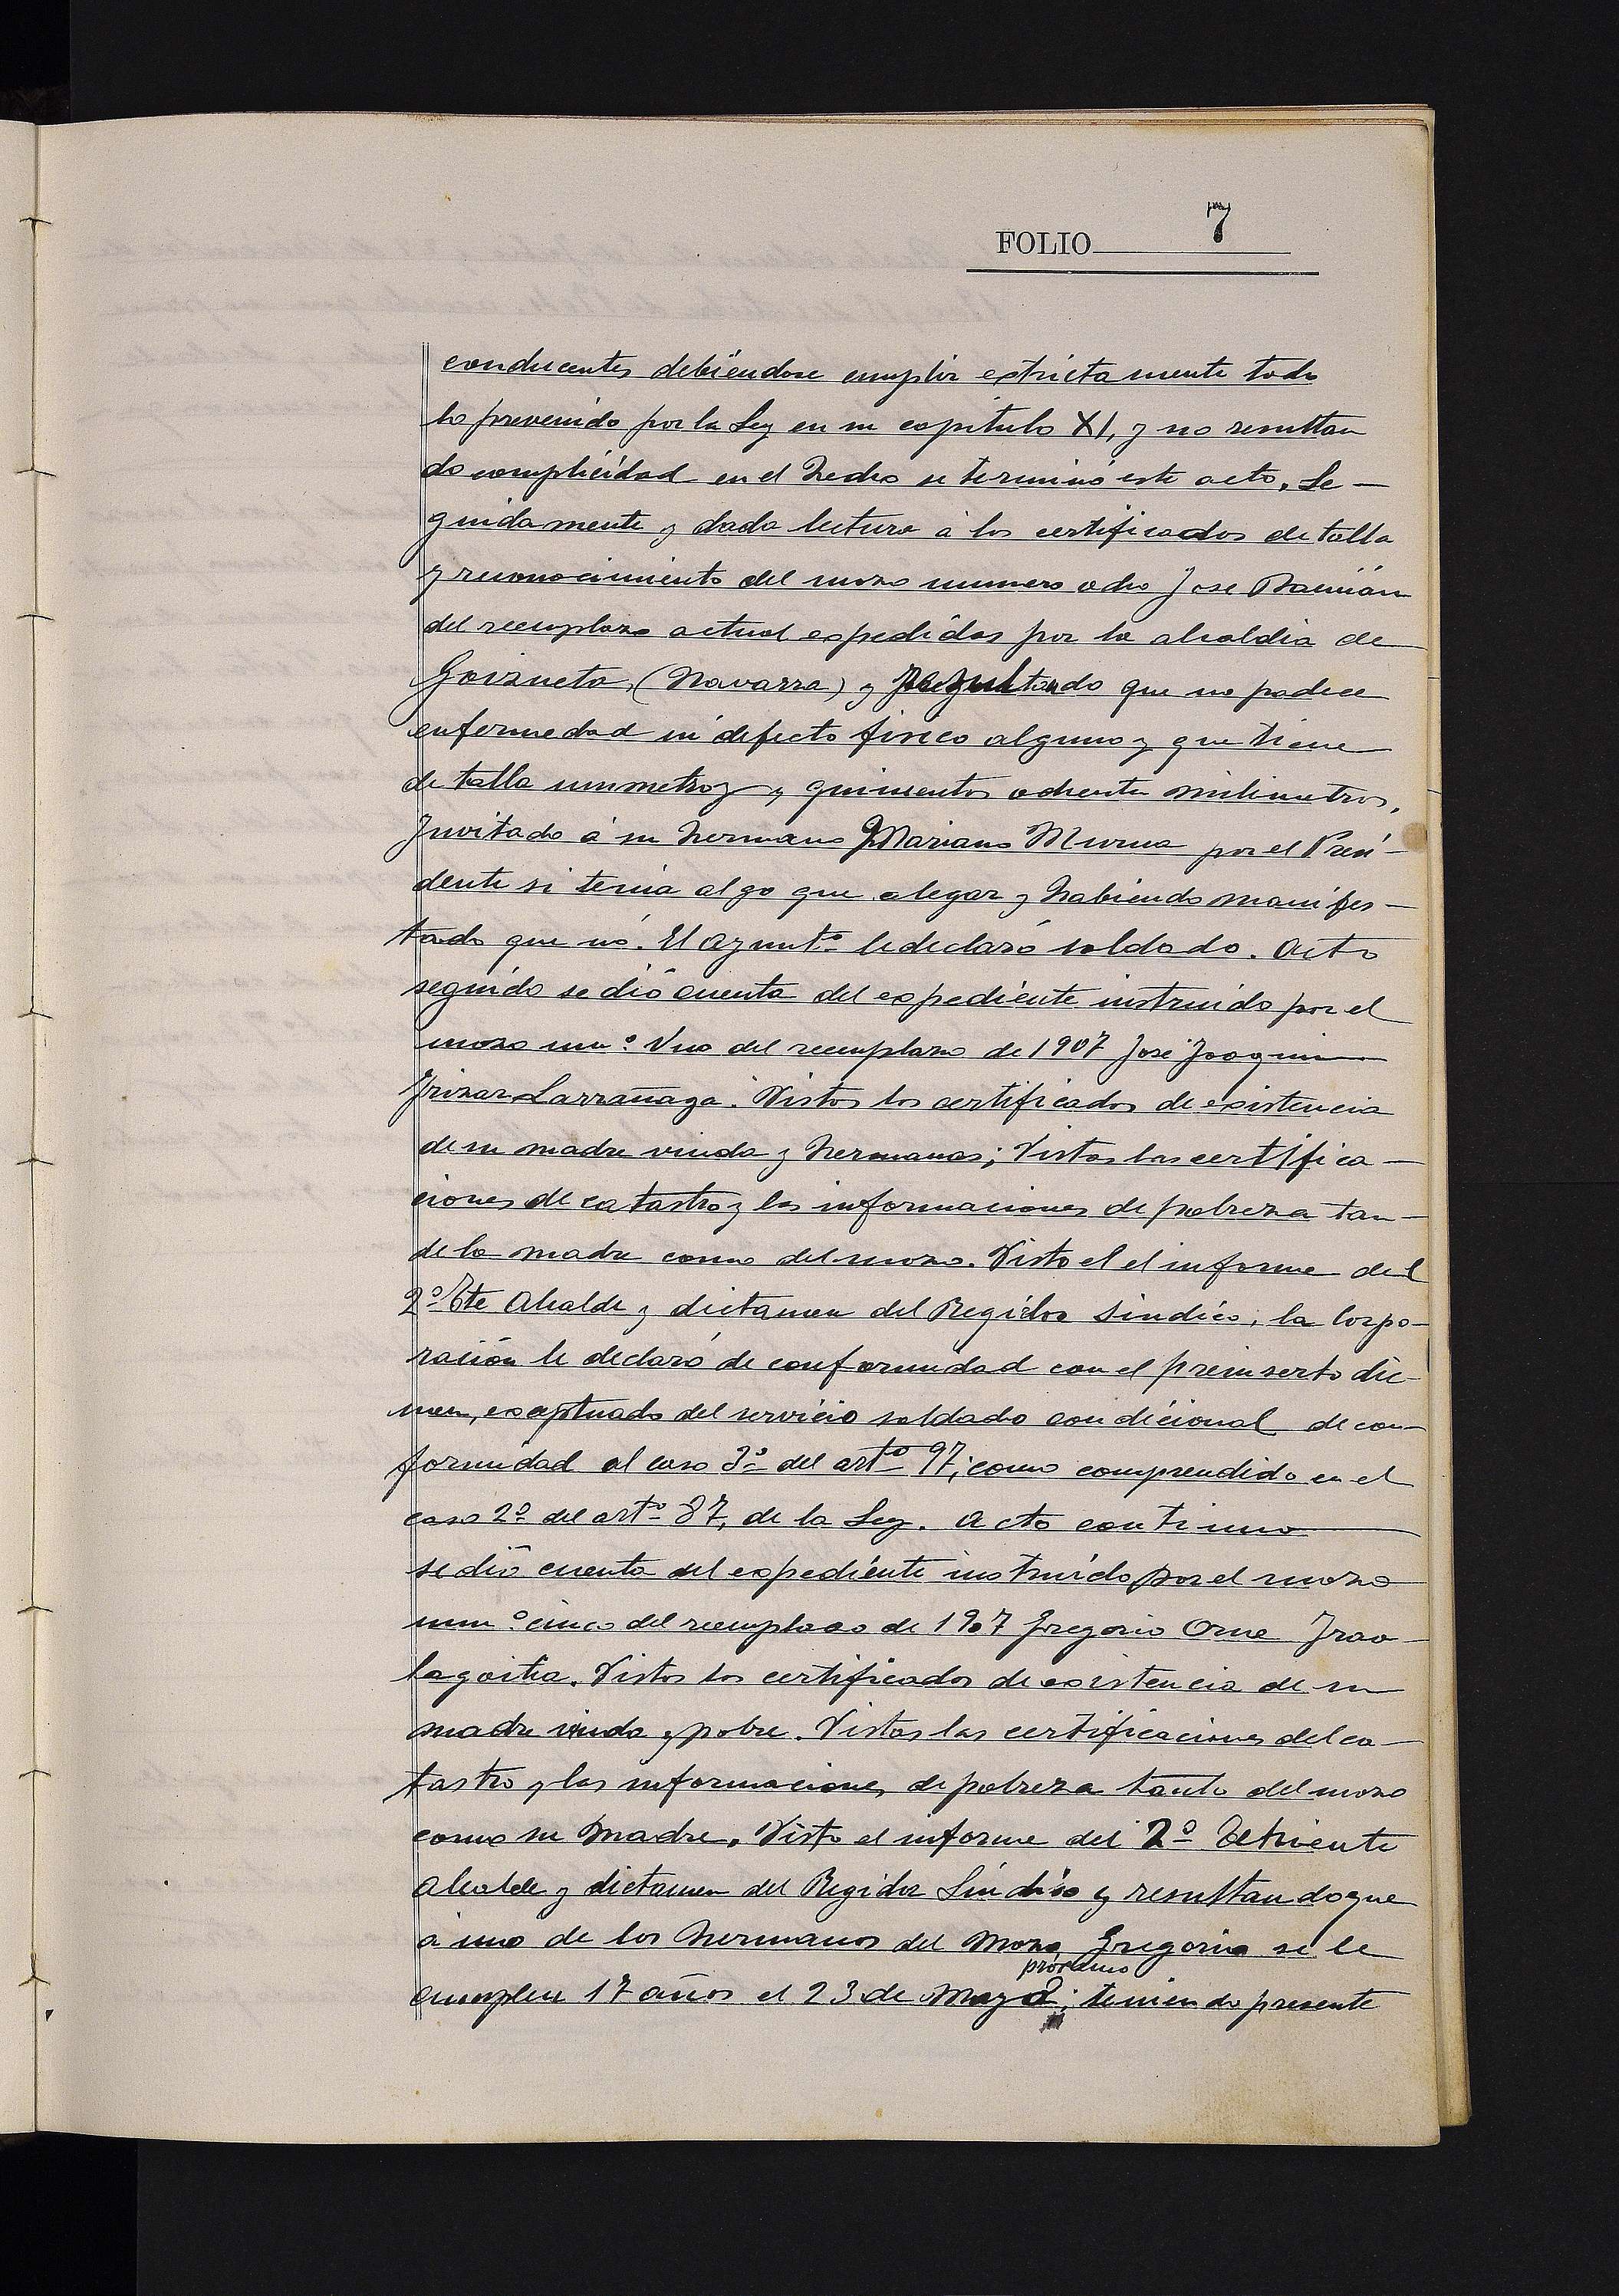 FOLIO 7
conducentes debiéndose cumplir estrictamente todo
lo prevenido por la Ley en su capítulo XI, y no resultan
do complicidad en el hecho se terminó este acto. Se-
guidamente y dada lectura á los certificados de talla
y reconocimiento del mozo numero ocho Jose Damián
del reemplazo actual expedidos por la alcaldia de
Goizueta, (Navarra) y resultando que no padece
enfermedad ni defecto fisico alguno y que tiene
de talla un metro y quinientos ochenta milimetros.
Invitado á su hermano Mariano Murua por el Presi-
dente si tenia algo que alegar y habiendo manifes-
tado que nó. El Ayuntº le declaró soldado. Acto
seguido se dió cuenta del expediente instruido por el
mozo numº Uno del reemplazo de 1907 José Joaquin
Irizar Larrañaga. Vistos los certificados de existencia
de su madre viuda y hermanas; Vistas las certifica-
ciones de catastro y las informaciones de pobreza tan-
de la madre como del mozo. Visto el el informe del
2º Tte Alcalde y dictamen del Regidor Sindico, la Corpo-
ración le declaró de conformidad con el preinserto dic-
men, exceptuado del servicio soldado condicional de con-
formidad al caso 3º del artº 97, como comprendido en el
caso 2º del artº 87, de la Ley. Acto continuo
se dió cuenta del expediente instruido por el mozo
numº cinco del reemplazo de 1907 Gregorio Orue Irao-
lagoitia. Vistos los certificados de existencia de su
madre viuda y pobre. Vistas las certificaciones del ca-
tastro y las informaciones de pobreza tanto del mozo
como su madre. Visto el informe del 2º Teniente
Alcalde y dictamen del Regidor Síndico y resultando que
á uno de los hermanos del mozo Gregorio se le
próximo
cumplen 17 años el 23 de Mayo; teniendo presente